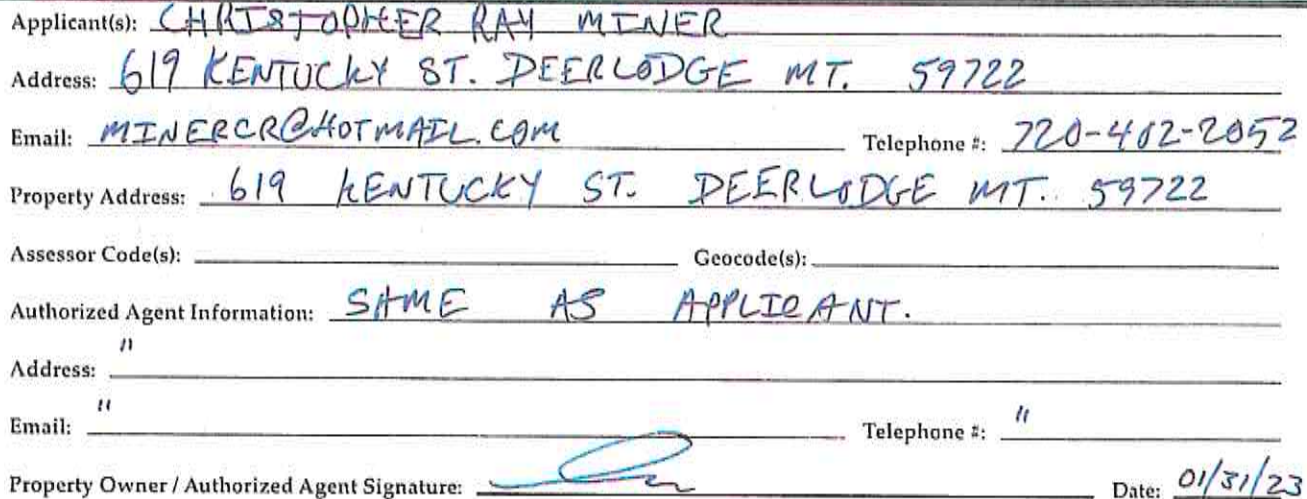 Applicant(s): CHRISTOPHER RAY MINER
Address: 619 KENTUCKY ST. DEERLODGE MT. 59722
Email: MINERCR@HOTMAIL.COM Telephone #: 720-402-2052
Property Address: 619 KENTUCKY ST. DEERLODGE MT. 59722
Assessor Code(s): Geocode(s):
Authorized Agent Information: SAME AS APPLICANT.
Address: "
Email: " Telephone #: "
Property Owner / Authorized Agent Signature: Date: 01/31/23